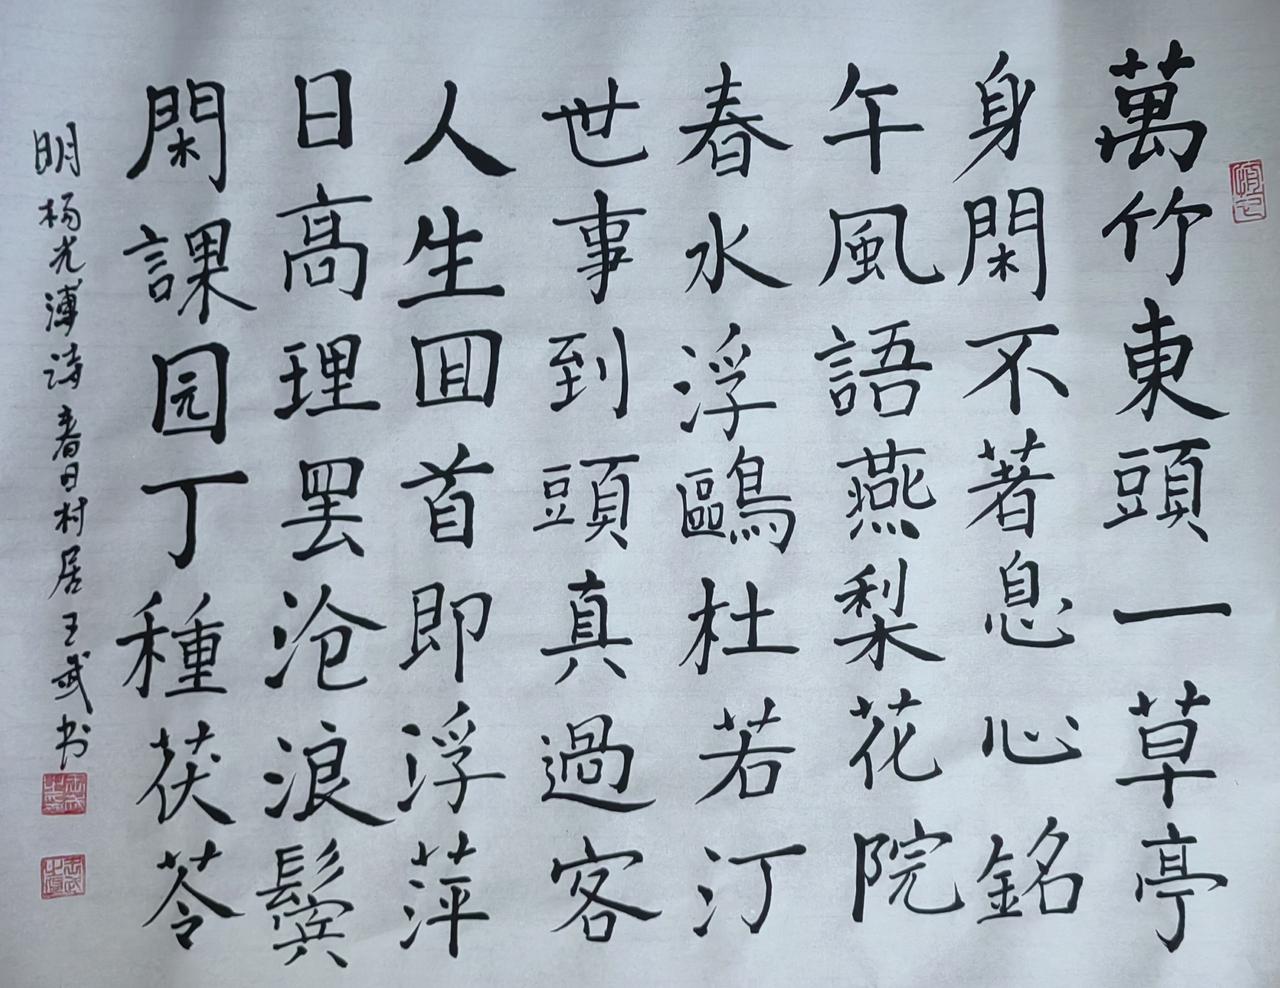 萬竹東頭一草亭
身閑不著息心銘
午風語燕梨花院
春水浮鷗杜若汀
世事到頭真過客
人生囬首即浮萍
日高理罢沧浪鬓
閑課园丁種茯苓
明杨光溥诗春日村居王武书